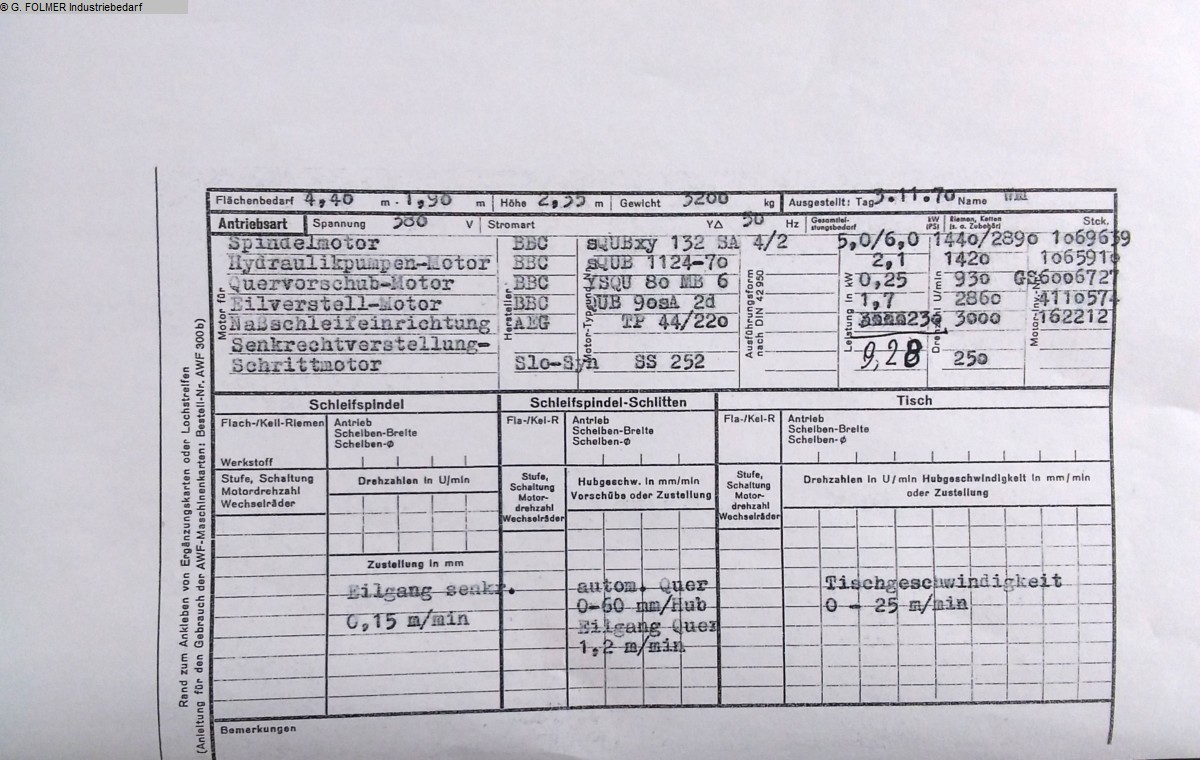 © G. FOLMER Industriebedarf
Flächenbedarf 4,40 m · 1,90 m Höhe 2,35 m Gewicht 3200 kg Ausgestellt: Tag 3.11.70 Name
Antriebsart Spannung 380 V Stromart Y∆ 50 Hz Gesamtleistungsbedarf kW (PS) Riemen, Ketten (s. a. Zubehör) Stck.
Spindelmotor BBC sQUBxy 132 SA 4/2 5,0/6,0 1440/2890 1069639
Hydraulikpumpen-Motor BBC sQUB 1124-70 2,1 1420 1065910
Quervorschub-Motor BBC YSQU 80 MB 6 0,25 930 GS6006727
Eilverstell-Motor BBC QUB 90sA 2d 1,7 2860 4110574
Naßschleifeinrichtung AEG TP 44/220 3000 162212
Senkrechtverstellung-
Schrittmotor Slo-Syn SS 252 9,28 250
Motor für
Hersteller
Ausführungsform nach DIN 42 950
Leistung in kW
Schleifspindel Schleifspindel-Schlitten Tisch
Flach-/Keil-Riemen Antrieb Fla-/Kei-R Antrieb Fla-/Kei-R Antrieb
Scheiben-Breite Scheiben-Breite Scheiben-Breite
Scheiben-Ø Scheiben-Ø Scheiben-Ø
Werkstoff
Stufe, Schaltung Motordrehzahl Wechselräder Drehzahlen in U/min
Stufe, Schaltung Motor-drehzahl Wechselräder Hubgeschw. in mm/min Vorschübe oder Zustellung
Stufe, Schaltung Motor-drehzahl Wechselräder Drehzahlen in U/min Hubgeschwindigkeit in mm/min oder Zustellung
Zustellung in mm
Eilgang senkr. autom. Quer Tischgeschwindigkeit
0-60 mm/Hub 0 - 25 m/min
0,15 m/min Eilgang Quer
1,2 m/min
Bemerkungen
Rand zum Ankleben von Ergänzungskarten oder Lochstreifen
(Anleitung für den Gebrauch der AWF-Maschinenkarten: Bestell-Nr. AWF 300b)